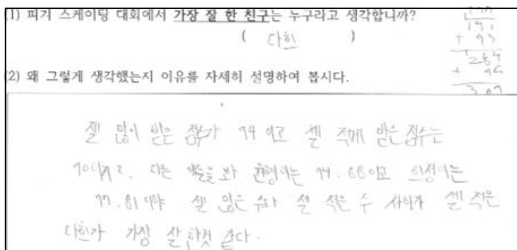 (1) 피겨 스케이팅 대회에서 가장 잘 한 친구는 누구라고 생각합니까?
( 다희 )
191
+ 93
284
(2) 왜 그렇게 생각했는지 이유를 자세히 설명하여 봅시다.
젤 많이 받은 점수가 94 이고 젤 적게 받은 점수는
90이다. 다른 애들을 봐 은 94.68이고 는
97.81이다 젤 많은 수와 젤 적은 수 사이가 젤 적은
다희가 가장 잘 한것 같다.